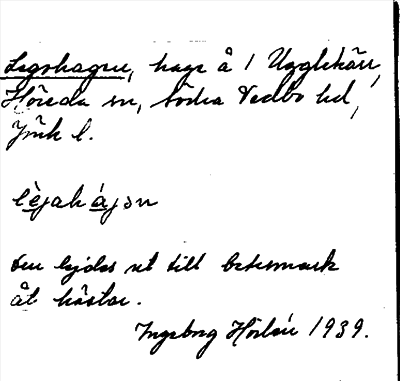 Legohagen, hage å 1 Ugglekärr,
Höreda sn, Södra Vedbo hd,
Jönk l.
lèjahájən
den lejdes ut till betesmark
åt hästar.
Ingeborg Hörlén 1939.